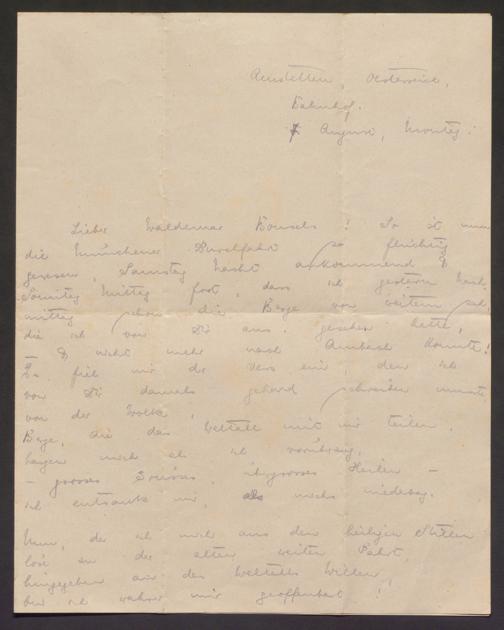 Amstetten, Oesterreich,
Bahnhof.
7 August, Montag.
Lieber Waldemar Bonsels! So ist nun
die Münchener Durchfahrt so flüchtig
gewesen, Samstag Nacht ankommend &
Sonntag Mittag fort, dass ich gestern Nach-
mittag schon die Berge von weitem sah,
die ich von Dir aus gesehen hatte,
& nicht mehr nach Ambach konnte!
Es fiel mir der Vers ein, den ich
von Dir damals gehend schreiben musste,
von der Wolke:
Berge, die das Weltall mit mir teilen,
mich als ich
grosses
ich mir, als mich
Nun, da ich mich aus den heiligen Stillen
löse zu der alten weiten Fahrt,
hingegeben an des Weltalls Willen,
bin ich wahrer mir geoffenbart!